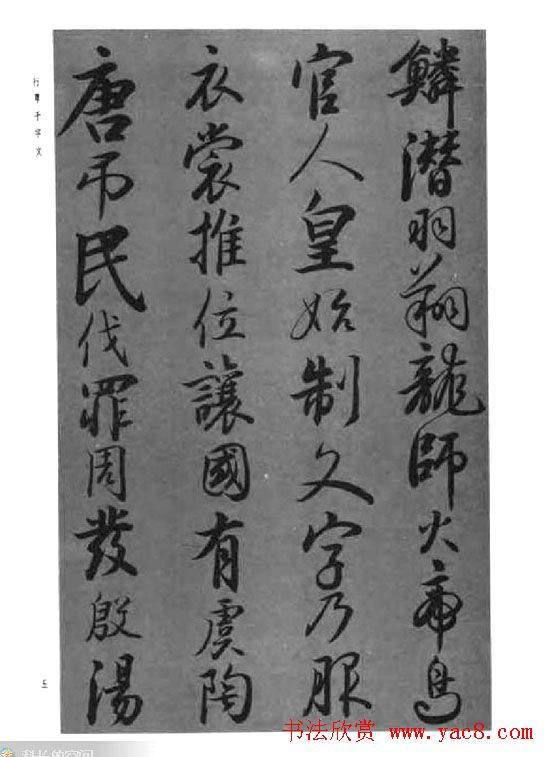 鱗潛羽翔龍師火帝鳥
官人皇始制文字乃服
衣裳推位讓國有虞陶
唐弔民伐罪周發殷湯
行草千字文
五
书法欣赏 www.yac8.com
科长的空间